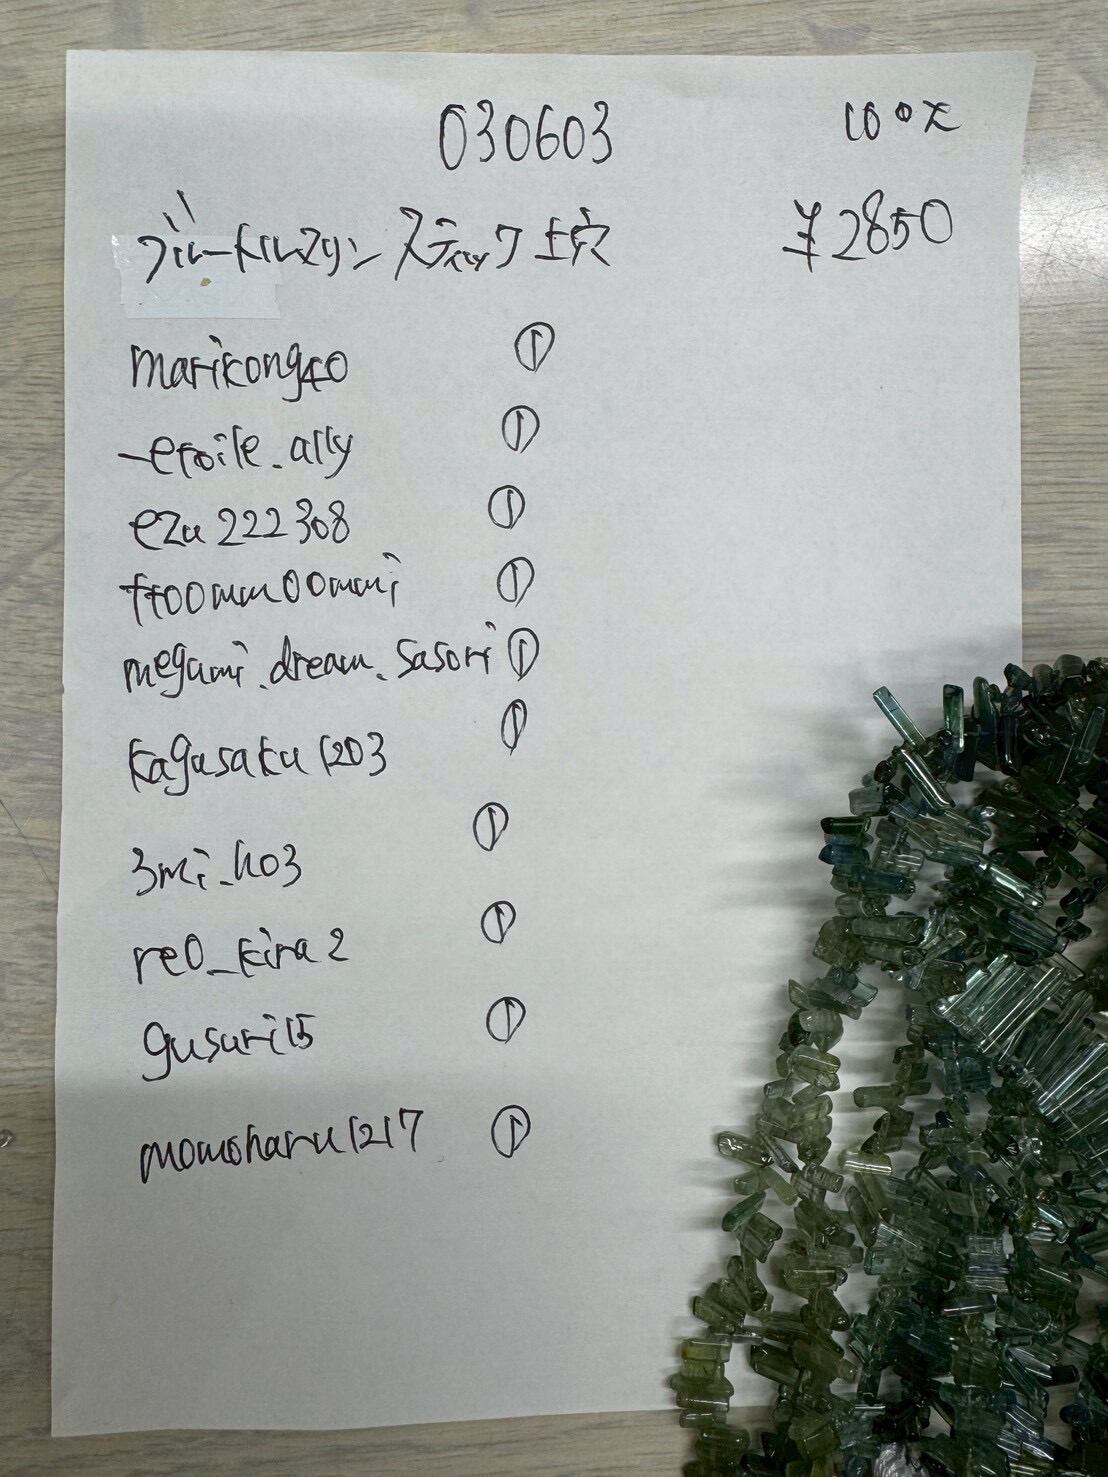 030603
100°大
ブルートルマリン スティック上穴
¥2850
marikong40 ①
_etoile.ally ①
ezu222308 ①
ff00mm00mmi ①
megumi.dream.sasori ①
kagusaku1203 ①
3mi_1103 ①
re0_kira2 ①
gusuri15 ①
momoharu1217 ①